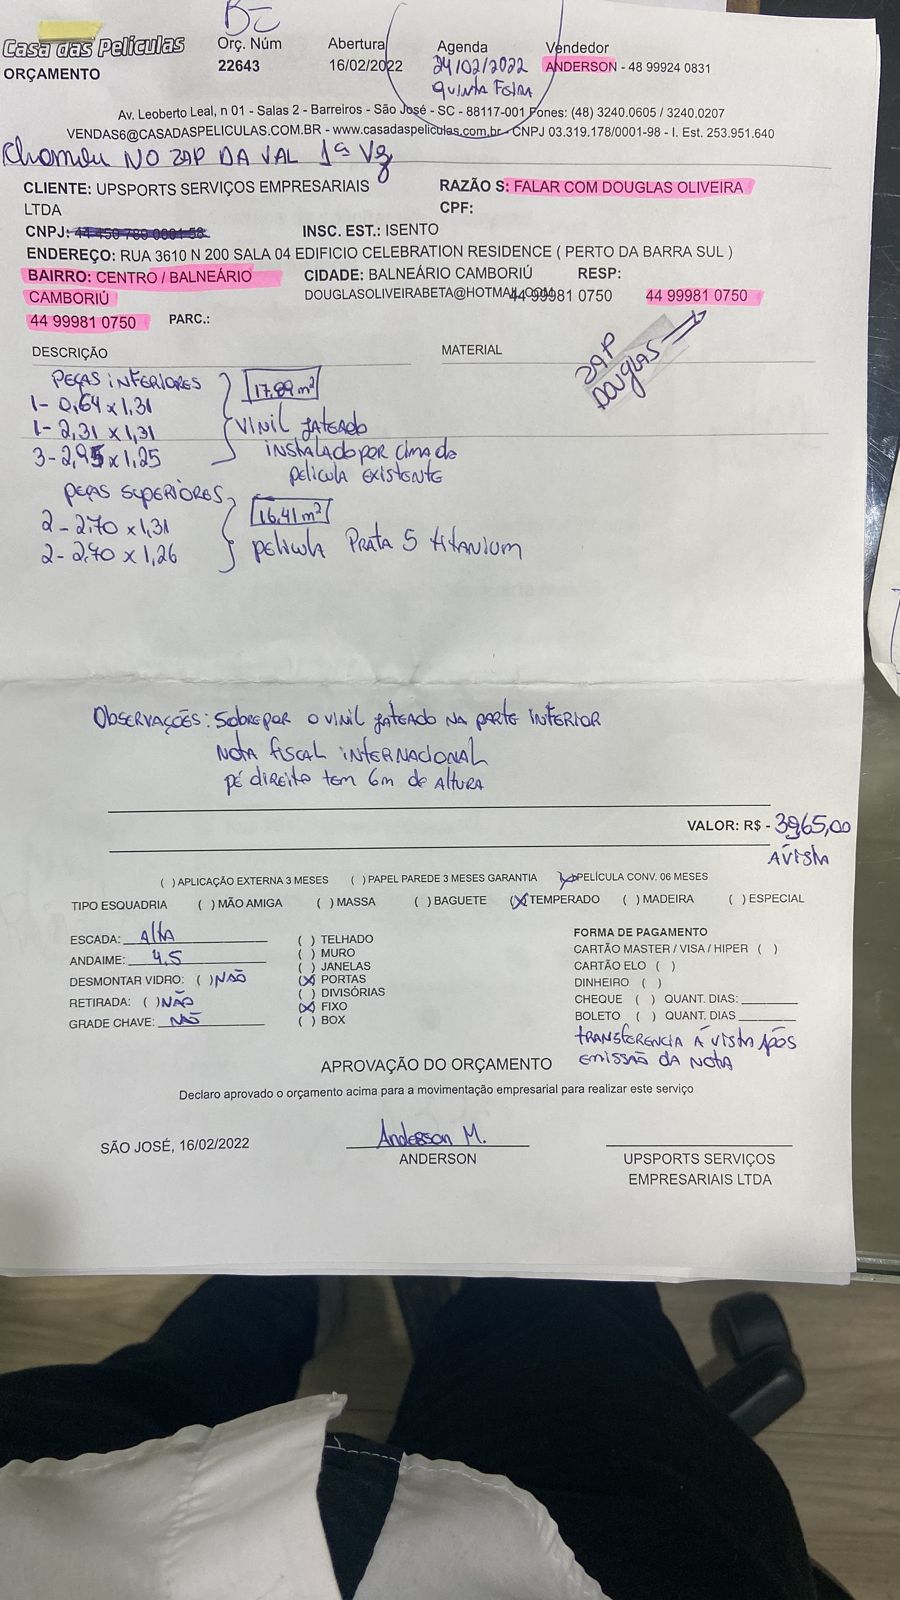 BC
Casa das Películas
ORÇAMENTO
Orç. Núm
22643
Abertura
16/02/2022
Agenda
24/02/2022
QUINTA FEIRA
Vendedor
ANDERSON - 48 99924 0831
Av. Leoberto Leal, n 01 - Salas 2 - Barreiros - São José - SC - 88117-001 Fones: (48) 3240.0605 / 3240.0207
VENDAS6@CASADASPELICULAS.COM.BR - www.casadaspeliculas.com.br - CNPJ 03.319.178/0001-98 - I. Est. 253.951.640
Chamou NO ZAP DA VAL 1ª Vz
CLIENTE: UPSPORTS SERVIÇOS EMPRESARIAIS
LTDA
RAZÃO S: FALAR COM DOUGLAS OLIVEIRA
CPF:
CNPJ: 44 450 780 0001 58
INSC. EST.: ISENTO
ENDEREÇO: RUA 3610 N 200 SALA 04 EDIFICIO CELEBRATION RESIDENCE ( PERTO DA BARRA SUL )
BAIRRO: CENTRO / BALNEÁRIO
CAMBORIÚ
CIDADE: BALNEÁRIO CAMBORIÚ
RESP:
DOUGLASOLIVEIRABETA@HOTMAIL.COM
44 99981 0750
44 99981 0750
44 99981 0750
PARC.:
DESCRIÇÃO
MATERIAL
ZAP
DOUGLAS
PEÇAS INFERIORES
17,89m²
1- 0,64 x 1,31
1- 2,31 x 1,31
3- 2,95 x 1,25
VINIL JATEADO
INSTALADO POR CIMA DE
PELICULA EXISTENTE
PEÇAS SUPERIORES
16,41m²
2 - 2,70 x 1,31
2 - 2,70 x 1,26
PELICULA PRATA 5 titANIUM
Observações: Sobrepor o VINIL JATEADO NA PARTE INFERIOR
NOTA FISCAL INTERNACIONAL
pé direito tem 6m de ALTURA
VALOR: R$ - 3965,00
À VISTA
( ) APLICAÇÃO EXTERNA 3 MESES ( ) PAPEL PAREDE 3 MESES GARANTIA (X) PELÍCULA CONV. 06 MESES
TIPO ESQUADRIA ( ) MÃO AMIGA ( ) MASSA ( ) BAGUETE (X) TEMPERADO ( ) MADEIRA ( ) ESPECIAL
ESCADA: Alta
ANDAIME: 4,5
DESMONTAR VIDRO: ( ) NÃO
RETIRADA: ( ) NÃO
GRADE CHAVE: NÃO
( ) TELHADO
( ) MURO
( ) JANELAS
(X) PORTAS
( ) DIVISÓRIAS
(X) FIXO
( ) BOX
FORMA DE PAGAMENTO
CARTÃO MASTER / VISA / HIPER ( )
CARTÃO ELO ( )
DINHEIRO ( )
CHEQUE ( ) QUANT. DIAS:
BOLETO ( ) QUANT. DIAS
TRANSFERENCIA À VISTA APÓS
EMISSÃO DA NOTA
APROVAÇÃO DO ORÇAMENTO
Declaro aprovado o orçamento acima para a movimentação empresarial para realizar este serviço
SÃO JOSÉ, 16/02/2022
Anderson M.
ANDERSON
UPSPORTS SERVIÇOS
EMPRESARIAIS LTDA